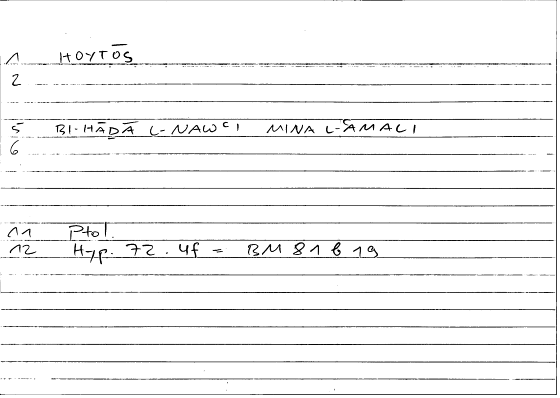 1 HOYTŌS
2
5 BI-HĀḎĀ L-NAWʿI MINA L-ʿAMALI
6
11 Ptol.
12 Hyp. 72.4f = BM 81 b 19